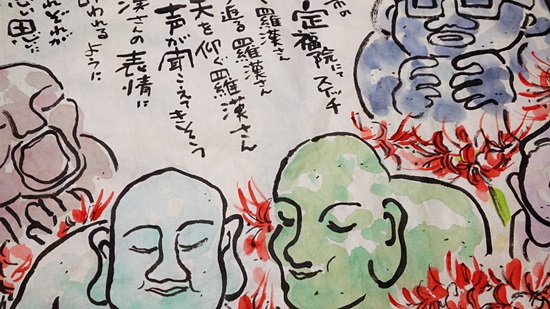 市の
定福院にてスケッチ
羅漢さん
迫る羅漢さん
天を仰ぐ羅漢さん
声が聞こえてきそう
漢さんの表情に
われるように
れぞれが